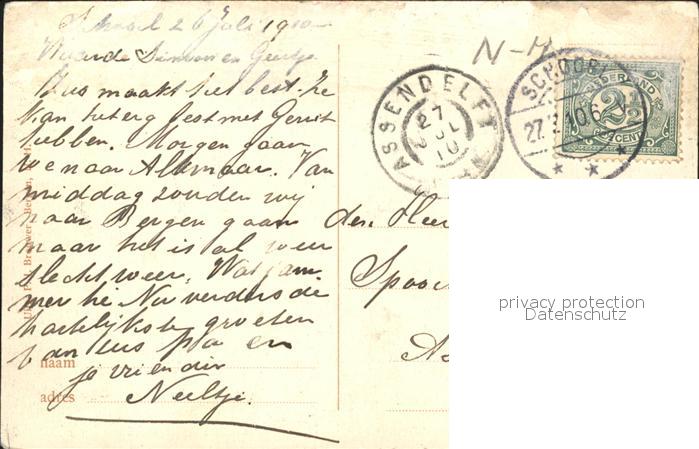 Schoorl 26 Juli 1910
Waarde Simon en Geertje
Zus maakt het best. ze
kan best met Gerrit
hebben. Morgen gaan
we naar Alkmaar. Van
middag zouden wij
naar Bergen gaan
maar het is al weer
slecht weer. Wat jam
mer hè. Nu verders de
hartelijkste groeten
van zus pa en
je vriendin
Neeltje.
naam
adres
N-H
ASSENDELFT
27 JUL 10
SCHOORL
27.7.10.6-
NEDERLAND
2½
CENT
den Heer
privacy protection
Datenschutz